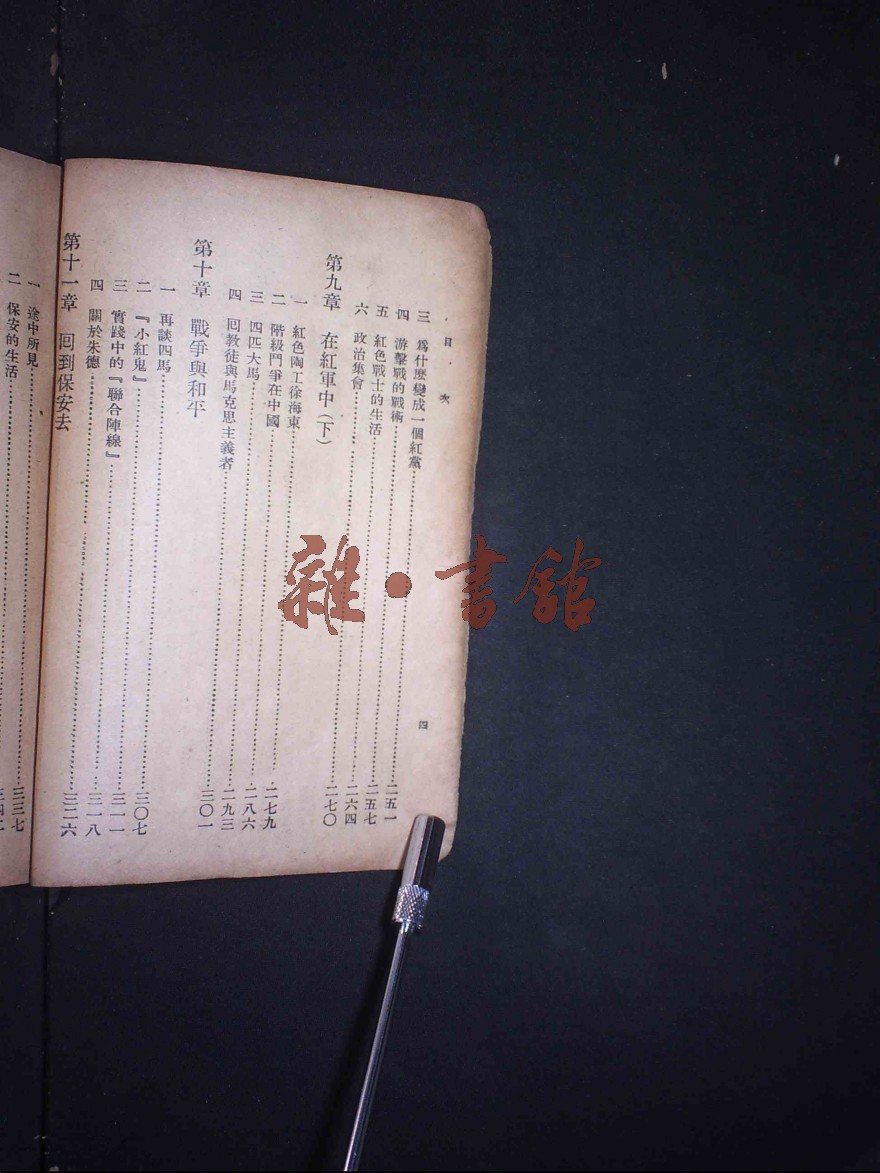 目次
三 為什麼變成一個紅黨……二五一
四 游擊戰的戰術……二五七
五 紅色戰士的生活……二六四
六 政治集會……二七〇
第九章 在紅軍中（下）
一 紅色陶工徐海東……二七九
二 階級鬥爭在中國……二八六
三 四匹大馬……二九三
四 回教徒與馬克思主義者……三〇一
第十章 戰爭與和平
一 再談四馬……三〇七
二 『小紅鬼』……三一一
三 實踐中的『聯合陣線』……三一八
四 關於朱德……三二六
四
第十一章 回到保安去
一 途中所見……三三七
二 保安的生活……
雜·書館